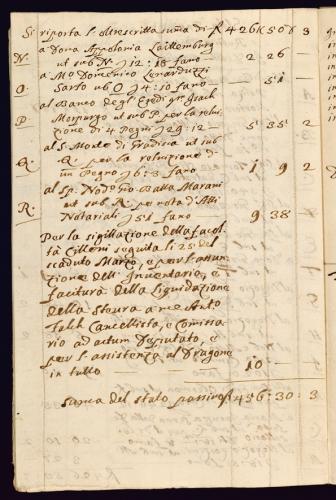 Si riporta l'oltrescritta suma di f 426 K 50 6 3
a Dona Appolonia Laittenburg
N: ut sub N: 12:18 fano 2 26 –
a Mo Domenico Lenarduzzi
O. Sarto ub O 4:10 fano – 51 –
al Banco degl'Eredi qm Isach
P. Morpurgo ut sub P per la relui-
zione di 4 Pegni 29:12 – 5 35 2
al S. Monte di Gradisca ut sub
Q. Q. per la reluizione di
un Pegno 6:3 fano 1 9 2
al Sp. Nod. Gio Batta Marani
R. ut sub R. per nota d'Atti
Notariali 51 fano 9 38
Per la sigillazione della facol-
tà Cilleni seguita li 25 del
scaduto Marzo, e per l'assun-
zione dell' Inventario, e
facitura della Liquidazione
della Steura a me Anto
Fell Cancellista, e Comissa-
rio ad actum Deputato, e
per l'assistenza al Dragone
in tutto 10 –
Suma del stato passivo f 456:30:3